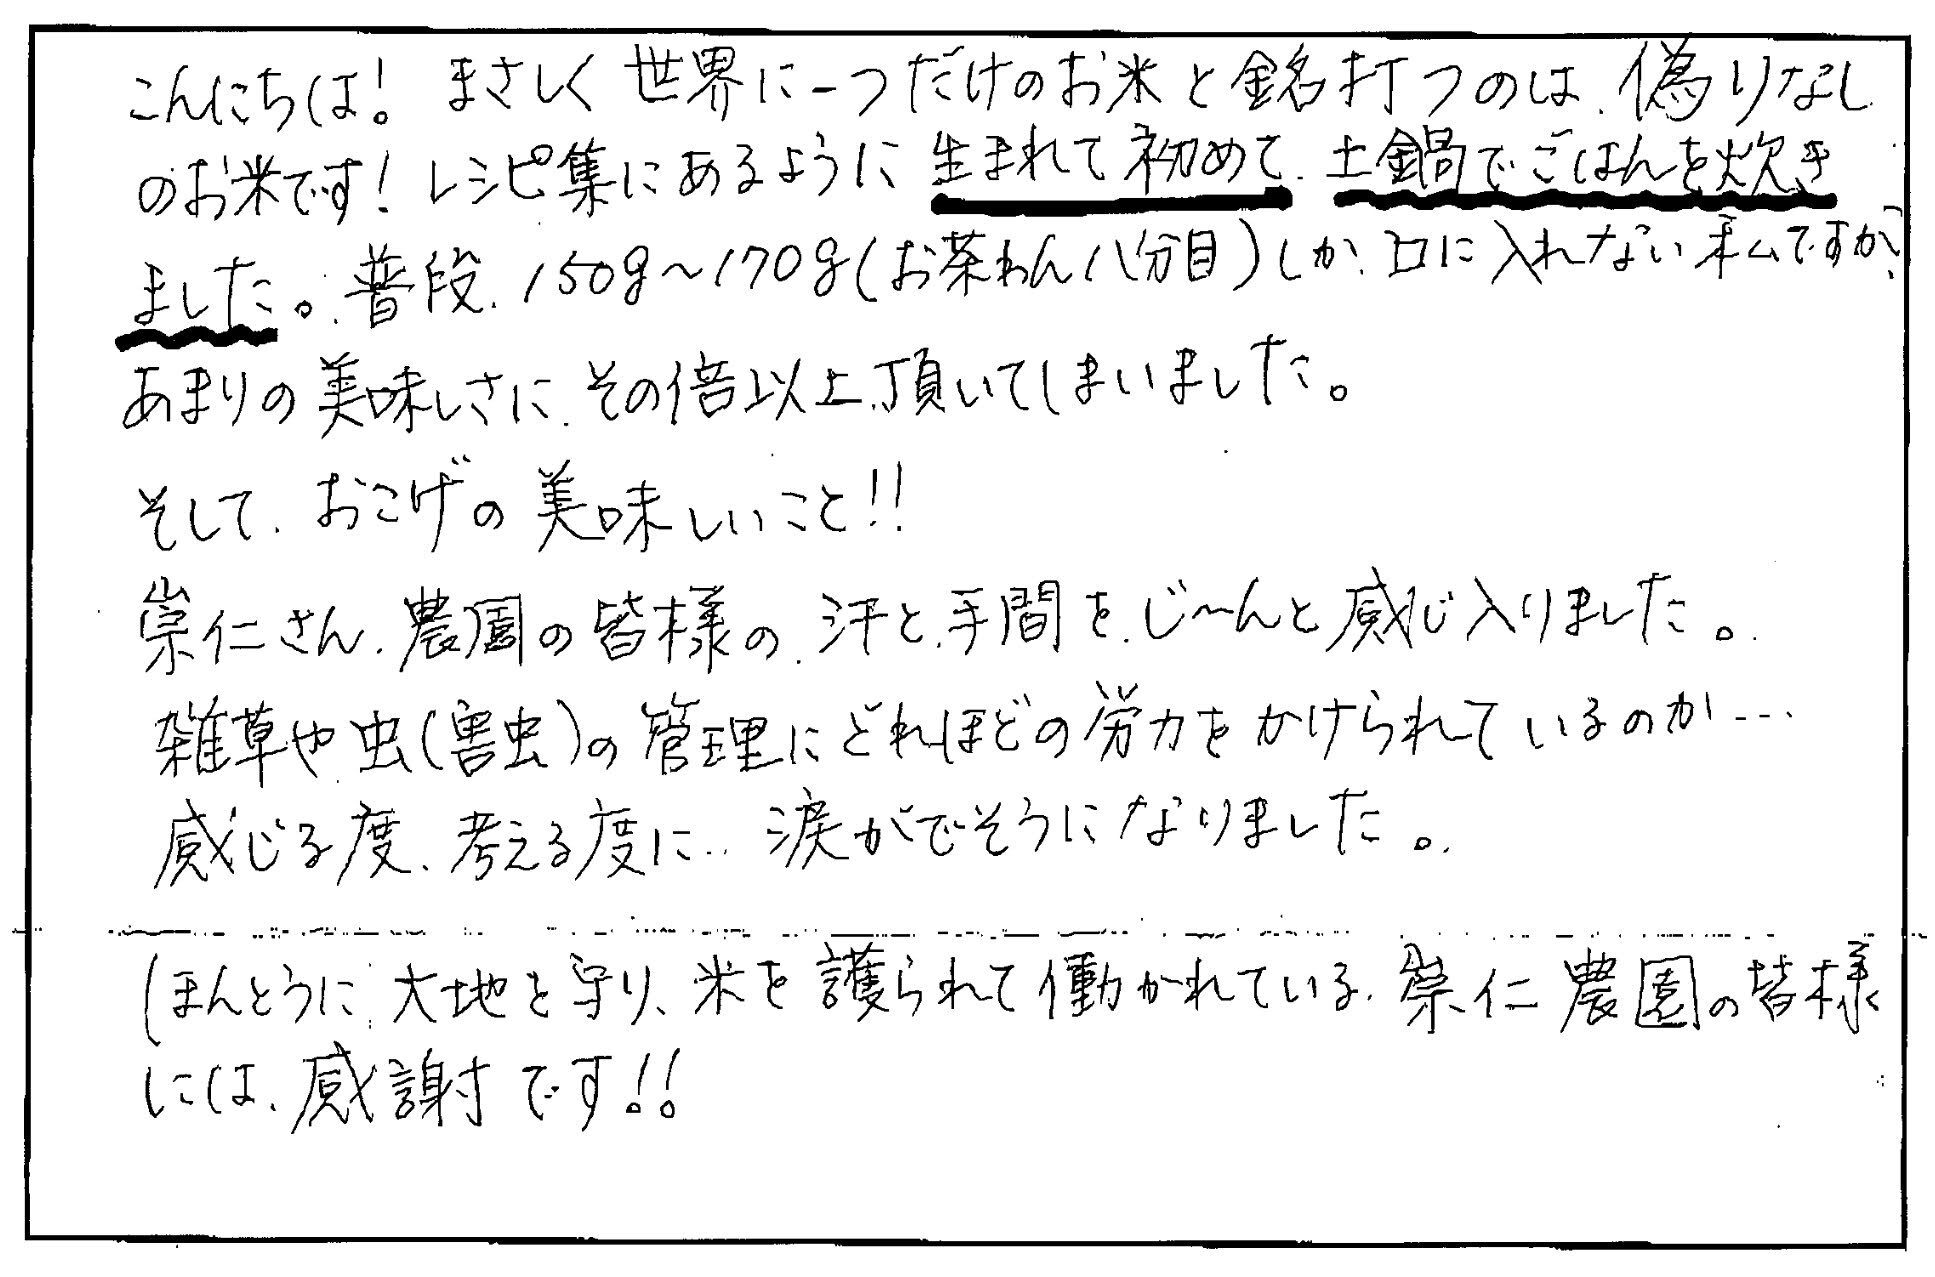 こんにちは! まさしく世界に一つだけのお米と銘打つのは、偽りなし
のお米です! レシピ集にあるように生まれて初めて、土鍋でごはんを炊き
ました。普段、150g〜170g(お茶わん八分目)しか、口に入れない私ですが、
あまりの美味しさに、その倍以上、頂いてしまいました。
そして、おこげの美味しいこと!!
崇仁さん、農園の皆様の、汗と、手間を、じ〜んと感じ入りました。
雑草や虫(害虫)の管理にどれほどの労力をかけられているのか…
感じる度、考える度に… 涙がでそうになりました。
ほんとうに、大地を守り、米を護られて働かれている、崇仁農園の皆様
には、感謝です!!